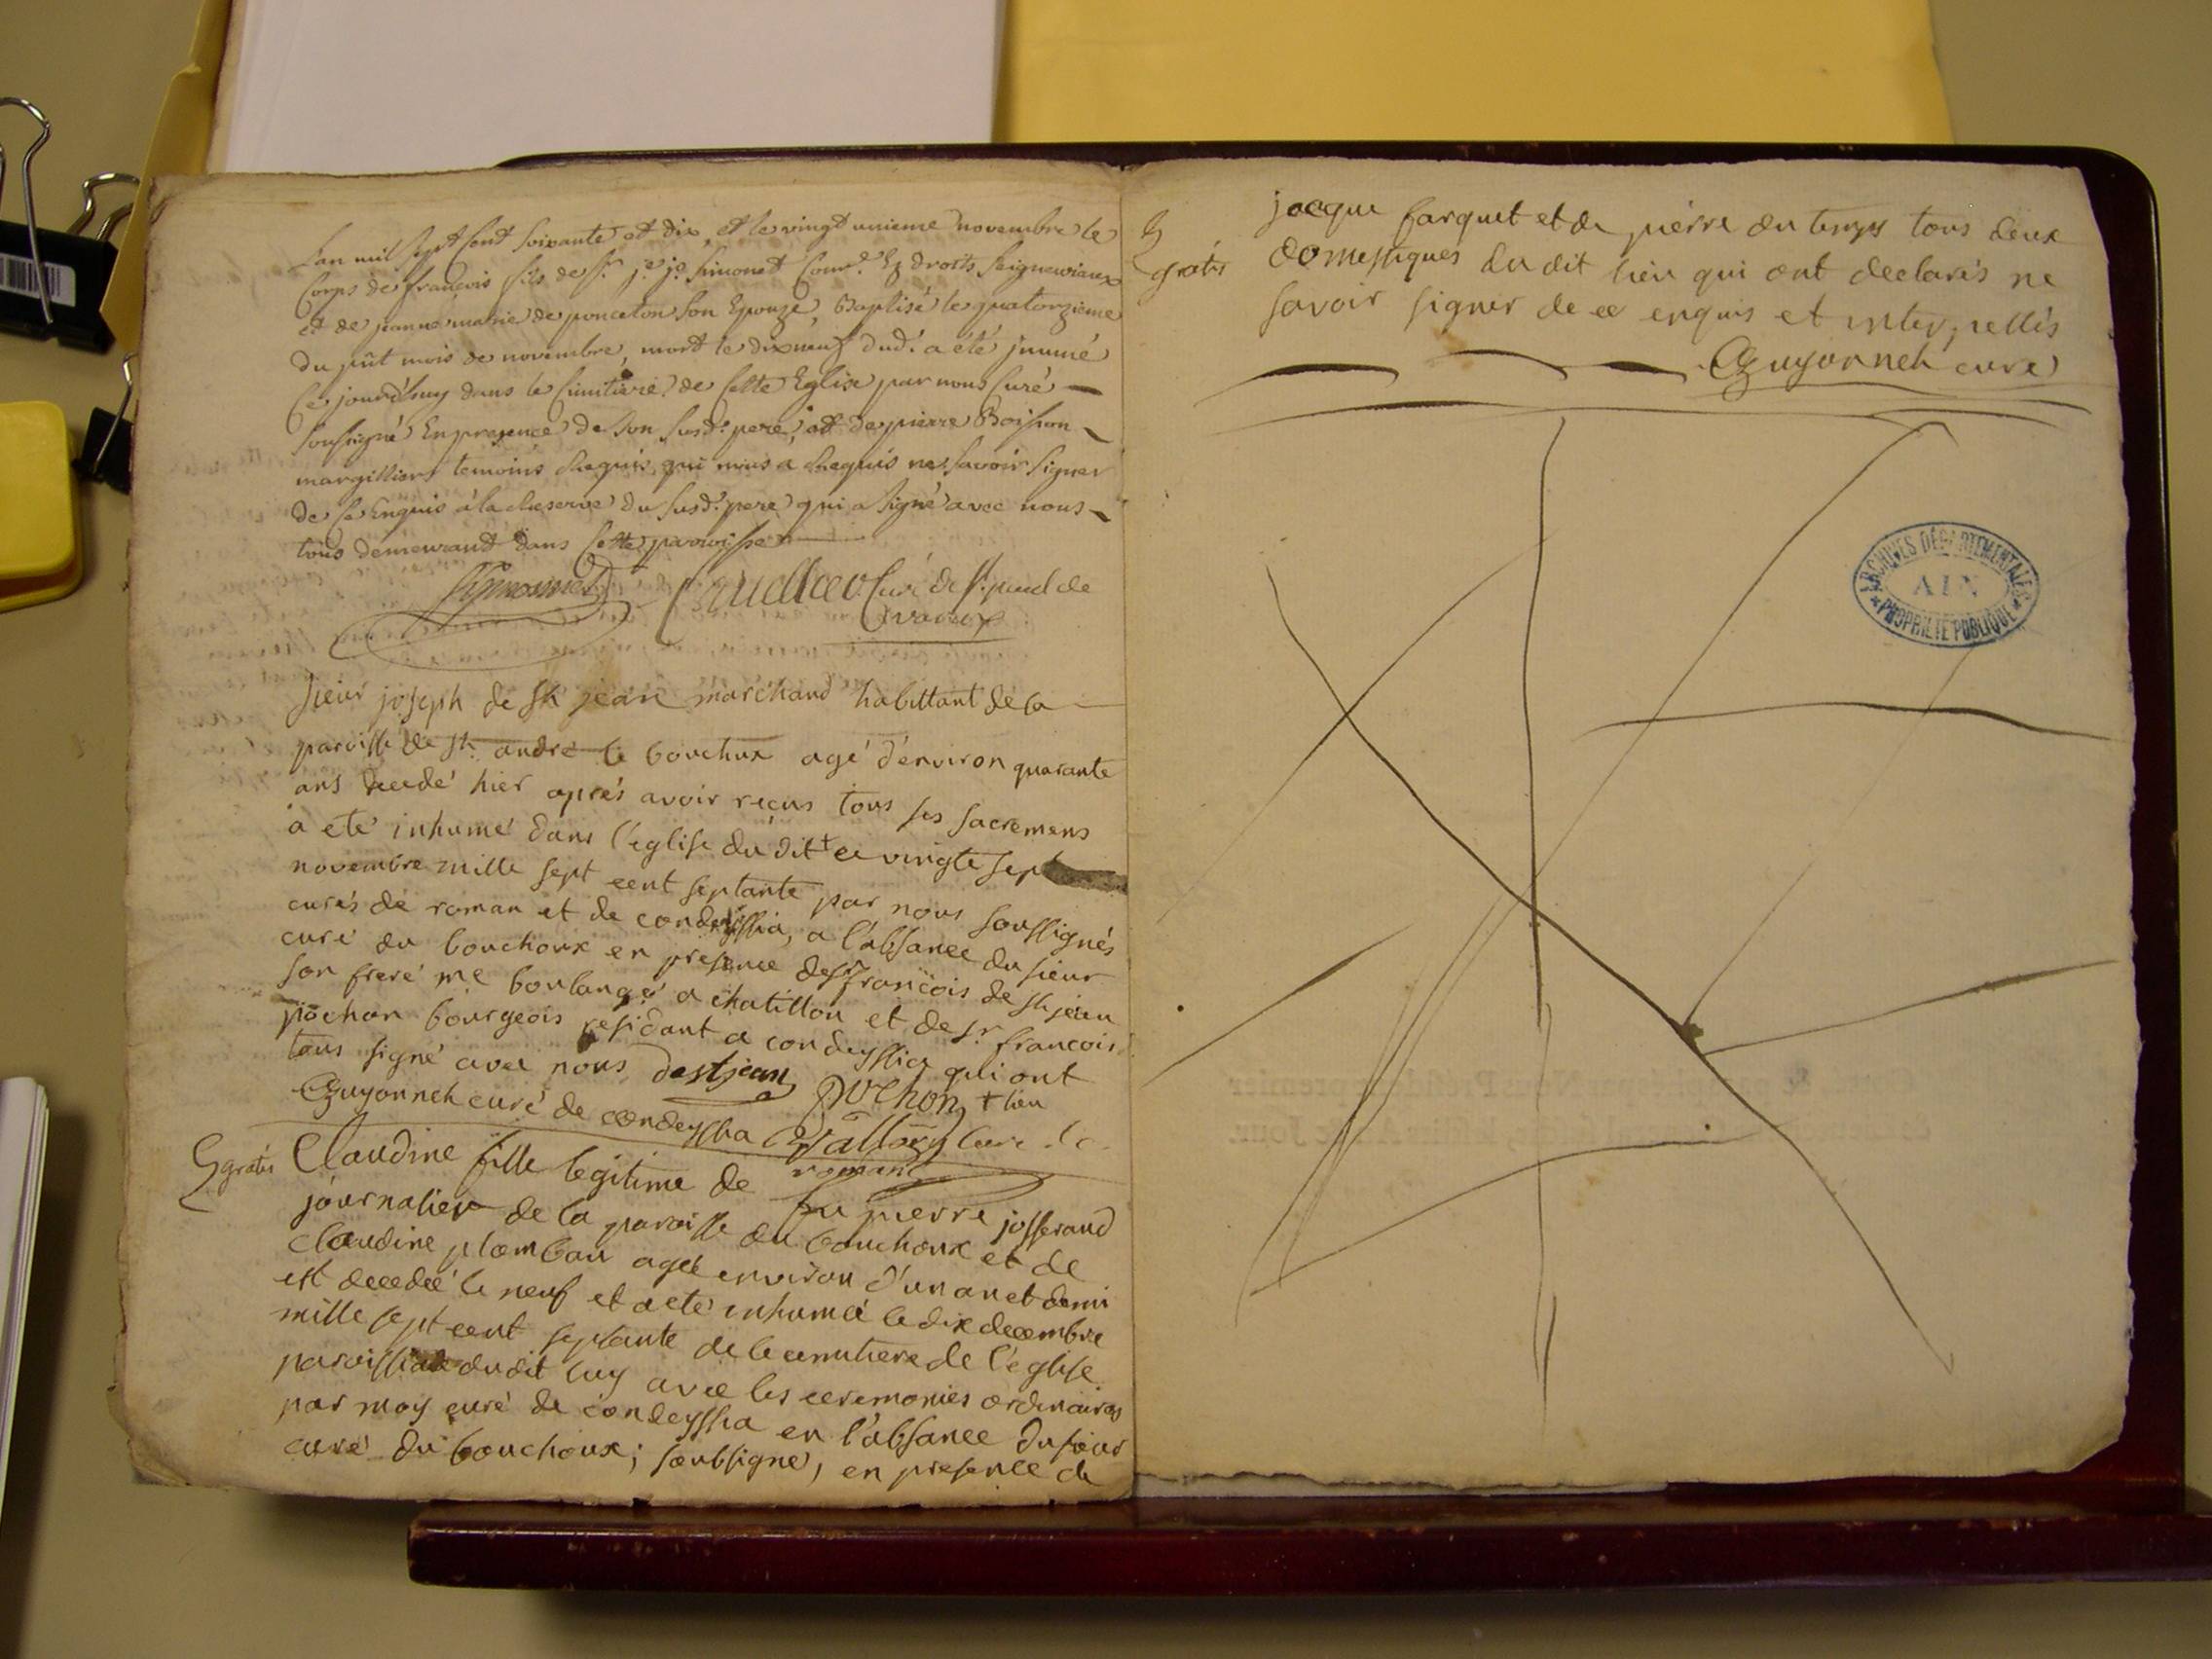 Lan mil sept cent soixante et dix, et le vingt unieme novembre le
Corps de francois fils de Sr. je. je. Simonet Comre. Ez droits Seigneuriaux
et de jeanne marie de ponceton son Epouze, Baptisé le quatorzieme
du pñt mois de novembre, mort le dixneuf dud. a été jnumé
Cejourd'huy dans le Cimitiere de Cette Eglise par nous Curé
Soussigné En presence de son susd. pere, et de pierre Boisson
margillier temoins Requis, qui nous a Requis ne savoir signer
de ce Enquis à la Reserve du susd. pere qui a signé avec nous
tous demeurant dans Cette parroisse
Simonet Curé de St. paul de
Varax
sieur joseph de St jean marchand habittant de la
paroisse de St. andré le bouchux agé d'environ quarante
ans decedé hier aprés avoir reçus tous ses sacremens
a eté inhumé dans l'eglise du dit + ce vingte sept
novembre mille sept cent septante par nous soussignés
curés de roman et de condeyssia, a l'absance du sieur
curé du bouchoux en presence de sr françois de St jean
son freré me boulangé a chatillon et de sr. francois
pochon bourgeois residant a condeyssia qui ont
tous signé avec nous destjean pochon + lieu
Guyonnet curé de condeyssia Vallory Cure de
roman
gratis Claudine fille legitime de feu pierre josserand
journalier de la paroisse du bouchoux et de
Claudine plomban ageé environ d'un an et demi
est decedeé le neuf et a eté inhumeé le dix decembre
mille sept cent septante de le cimitiere de l'eglise
paroissiale dudit luy avec les ceremonies ordinaires
par moy curé de condeyssia en l'absance du sieur
curé du bouchoux; soubsigné, en presence de
gratis
jacque farquet et de pierre du temps tous deux
domestiques du dit lieu qui ont declarés ne
savoir signer de ce enquis et interpellés
Guyonnet curé
ARCHIVES DÉPARTEMENTALES
AIN
PROPRIÉTÉ PUBLIQUE